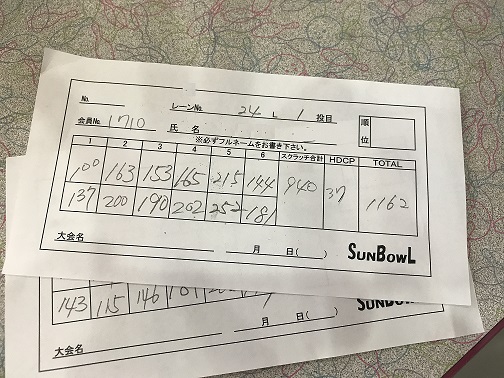 № レーン№ 24 L 1 投目 順位
会員№ 1710 氏 名
※必ずフルネームをお書き下さい。
1 2 3 4 5 6 スクラッチ合計 HDCP TOTAL
100 163 153 165 215 144 940 37 1162
137 200 190 202 252 181
大会名 月 日( ) SUNBOWL
143 115 146
大会名 月 日( ) SUNBO